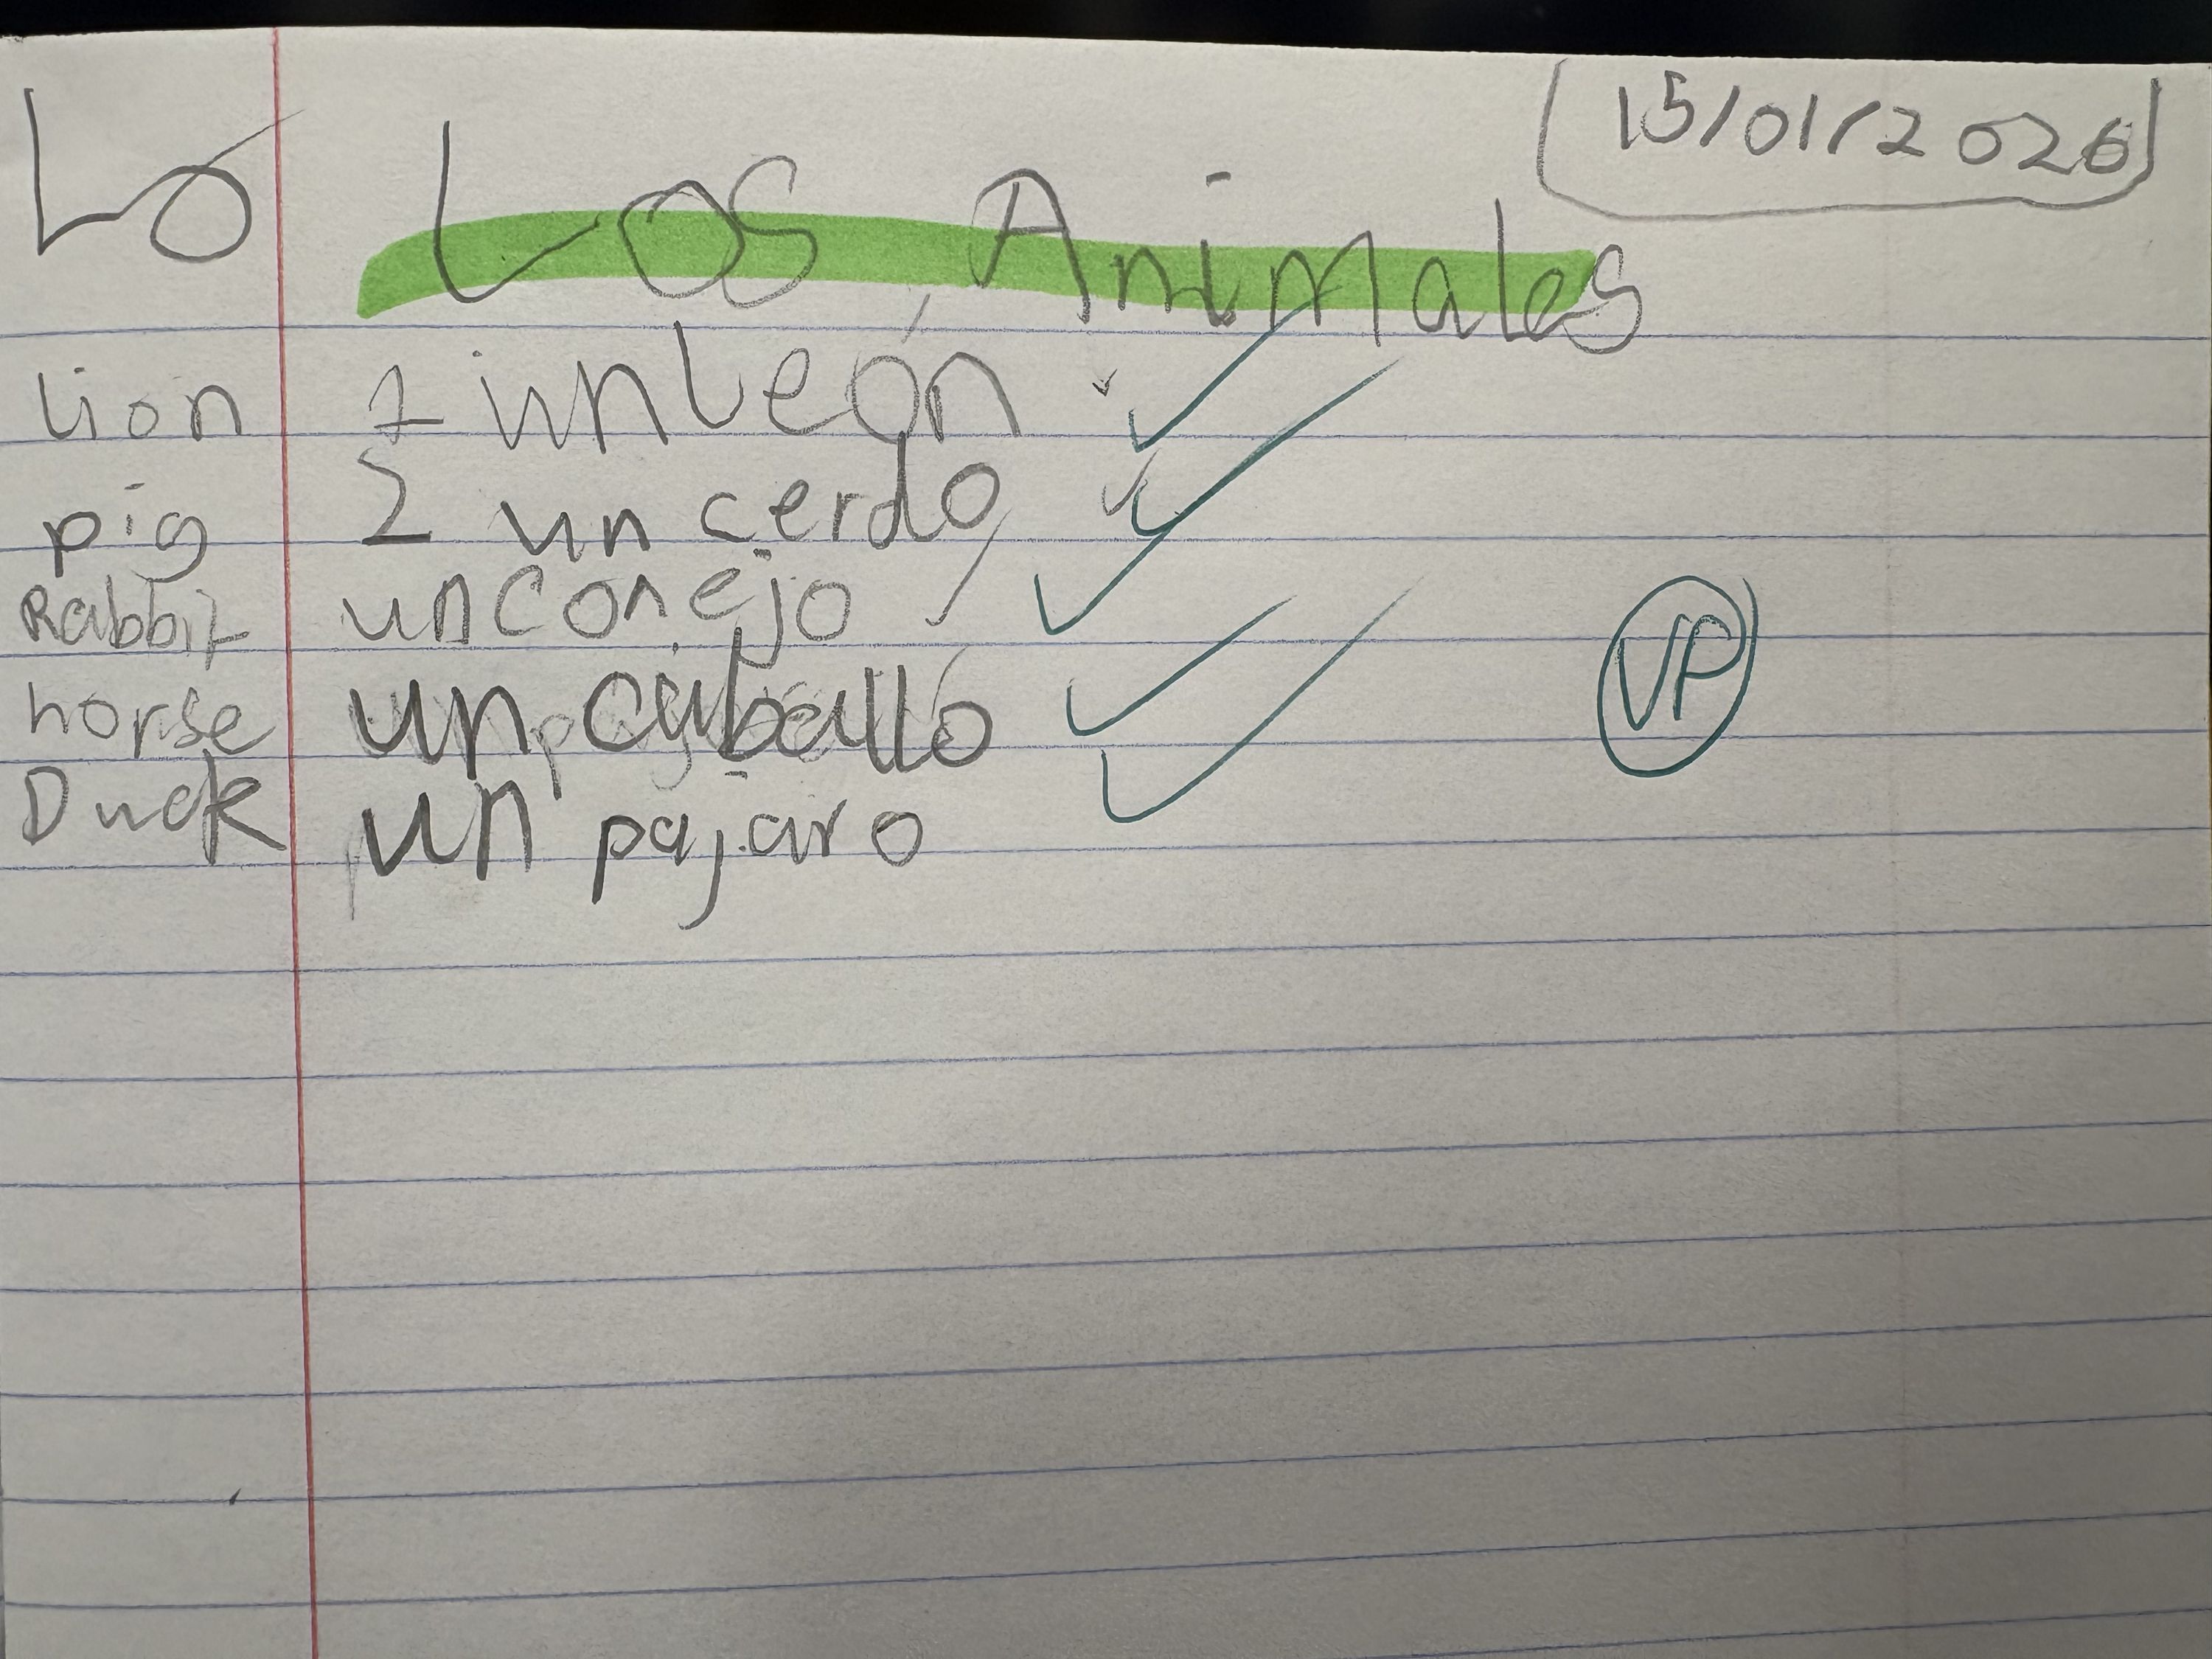 15/01/2026
LO Los Animales
lion 1 un León
pig 2 un cerdo
Rabbit un conejo
horse un caballo
Duck un pajaro
VP